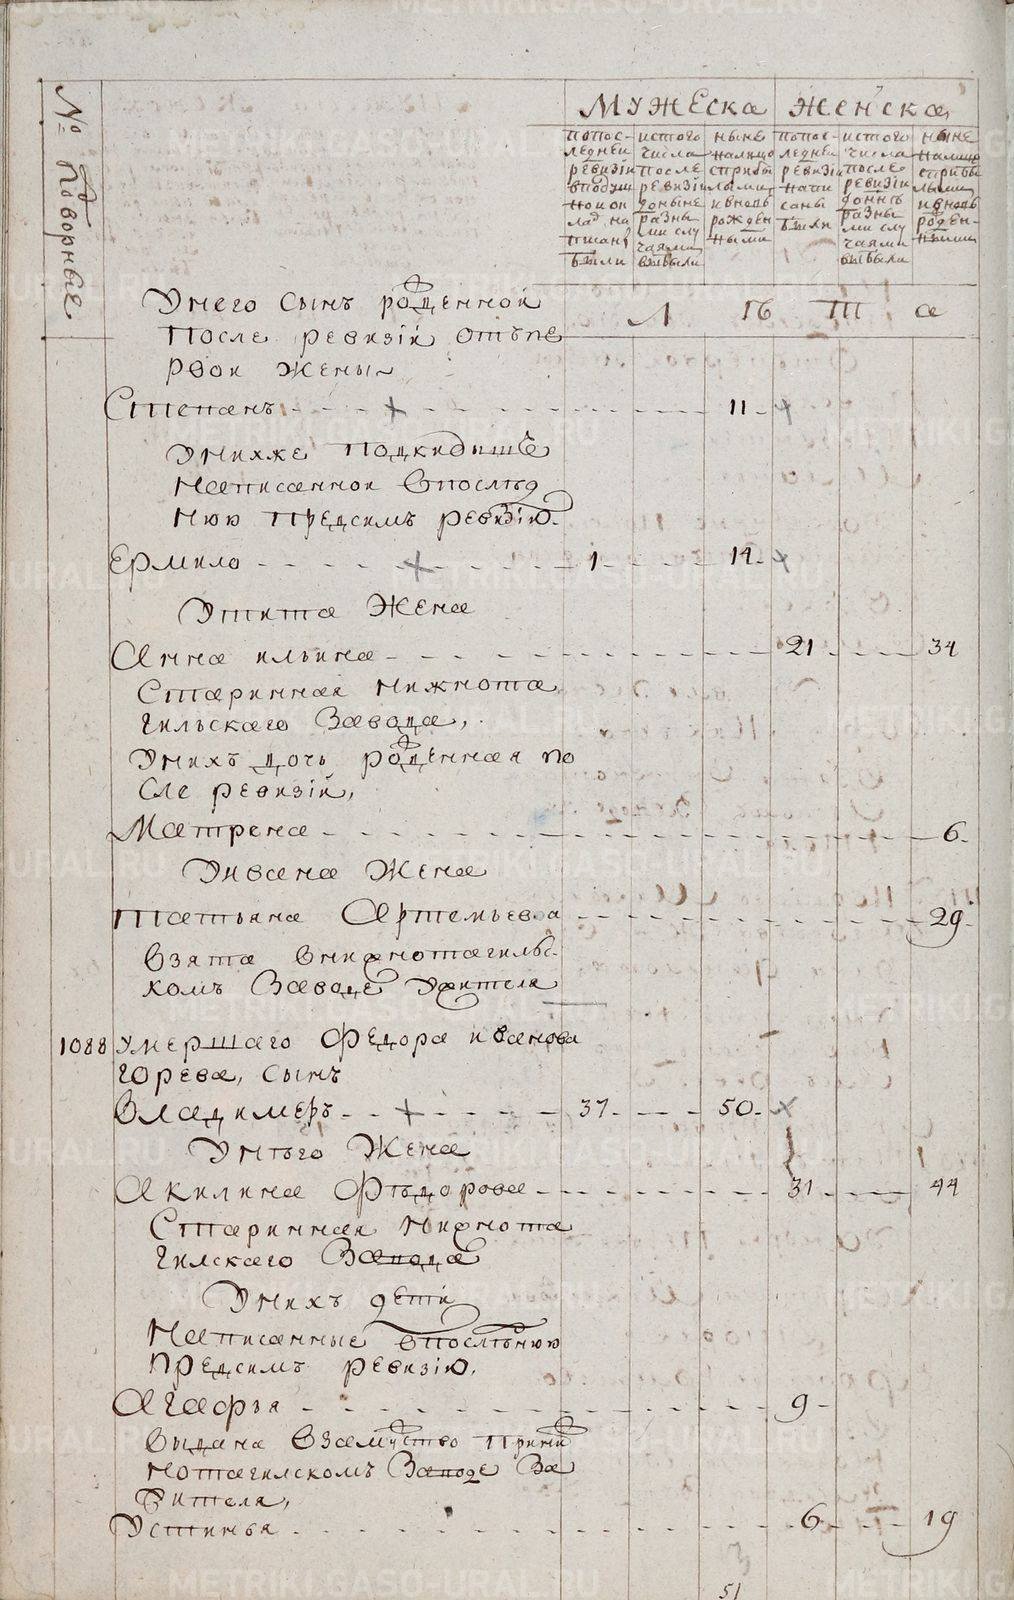 № Подворные
Мужеска
Женска
попос-
ледней
ревизіи
вподуш
ной ок
лад на
писаны
были
истого
числа
после
ревизіи
доныне
разны
ми слу
чаями
выбыли
ныне
налицо
сприбы
лыми
ивновь
рожден
ными
попос-
ледней
ревизіи
напи
саны
были
истого
числа
после
ревизіи
донне
разны
ми слу
чаями
выбыли
ныне
налицо
сприбы
лыми
ивновь
рожден-
ными
Л Тъ Ш а
Унего сынъ рожденной
после ревизіи отъпе
рвои жены
Степанъ 11
Унихже подкидышъ
написанной впослѣд
нюю предсимъ ревизію
Ермило 1 14
Утита жена
Анна ильина 21 34
Старинная нижнота
гильскаго Завода,
Унихъ дочь рожденная по
сле ревизіи,
Матрена 6
Уивана жена
Татьяна Артемьева 29
взята внижнотагильс-
комъ Заводе ужителя
1088 Умершаго Федора иванова
горева, сынъ
Владимеръ 37 50
Унѣго Жена
Акилина Фѣдорова 31 44
Старинная нижнота
гилскаго Завода
Унихъ дети
Написанные впослѣднюю
предсимъ ревизію,
Агафья 9
выдана взамужство приниж
нотагилскомъ Заводе За
жителя,
Устинья 6 19
51